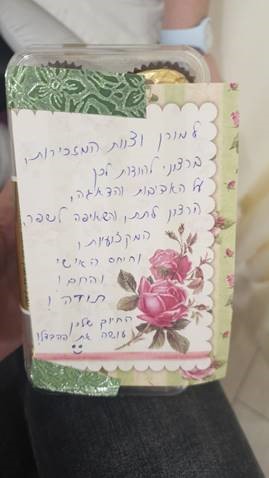 למורן וצוות המזכירות,
ברצוני להודות לכן
על האדיבות והדאגה,
הרצון לתת, והשאיפה לשפר,
המקצועיות,
והיחס האישי
והחם!
תודה!
החיוך שלכן
עושה את ההבדל!